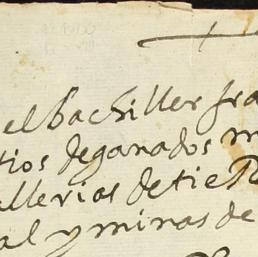 el bachiller fra
tios de ganados m
allerias de tierr
al y minas de